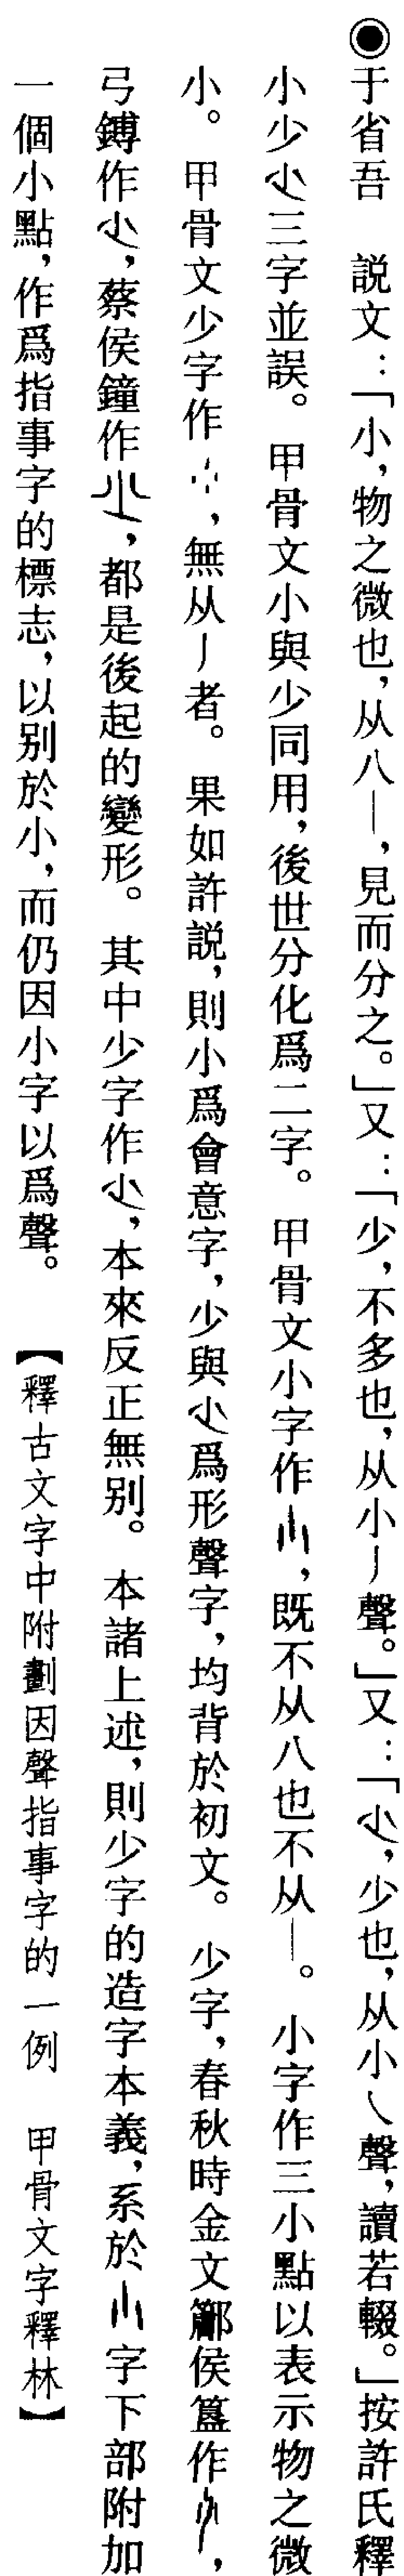 ◉于省吾　説文：「小，物之微也，从八丨，見而分之。」又：「少，不多也，从小丿聲。」又：「𡮐，少也，从小乀聲，讀若輟。」按許氏釋
小少𡮐三字並誤。　甲骨文小與少同用，後世分化爲二字。　甲骨文小字作，既不从八也不从丨。　小字作三小點以表示物之微
小。　甲骨文少字作，無从丿者。　果如許説，則小爲會意字，少與𡮐爲形聲字，均背於初文。　少字，春秋時金文鄘侯簋作，
弓鎛作𡮐，蔡侯鐘作，都是後起的變形。　其中少字作𡮐，本來反正無别。　本諸上述，則少字的造字本義，系於字下部附加
一個小點，作爲指事字的標志，以别於小，而仍因小字以爲聲。　【釋古文字中附劃因聲指事字的一例　甲骨文字釋林】